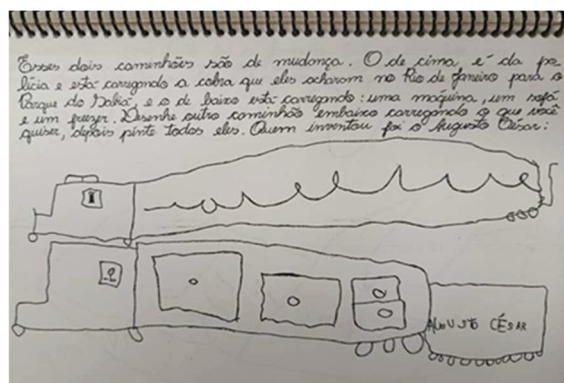 Esses dois caminhões são de mudança. O de cima, é da po
lícia e está carregando a cobra que eles acharam no Rio de Janeiro para o
Parque do Sabiá, e o de baixo está carregando: uma máquina, um sofá
e um freezer. Desenhe outro caminhão embaixo carregando o que você
quiser, depois pinte todos eles. Quem inventou foi o Augusto César:
AUGUSTO CÉSAR